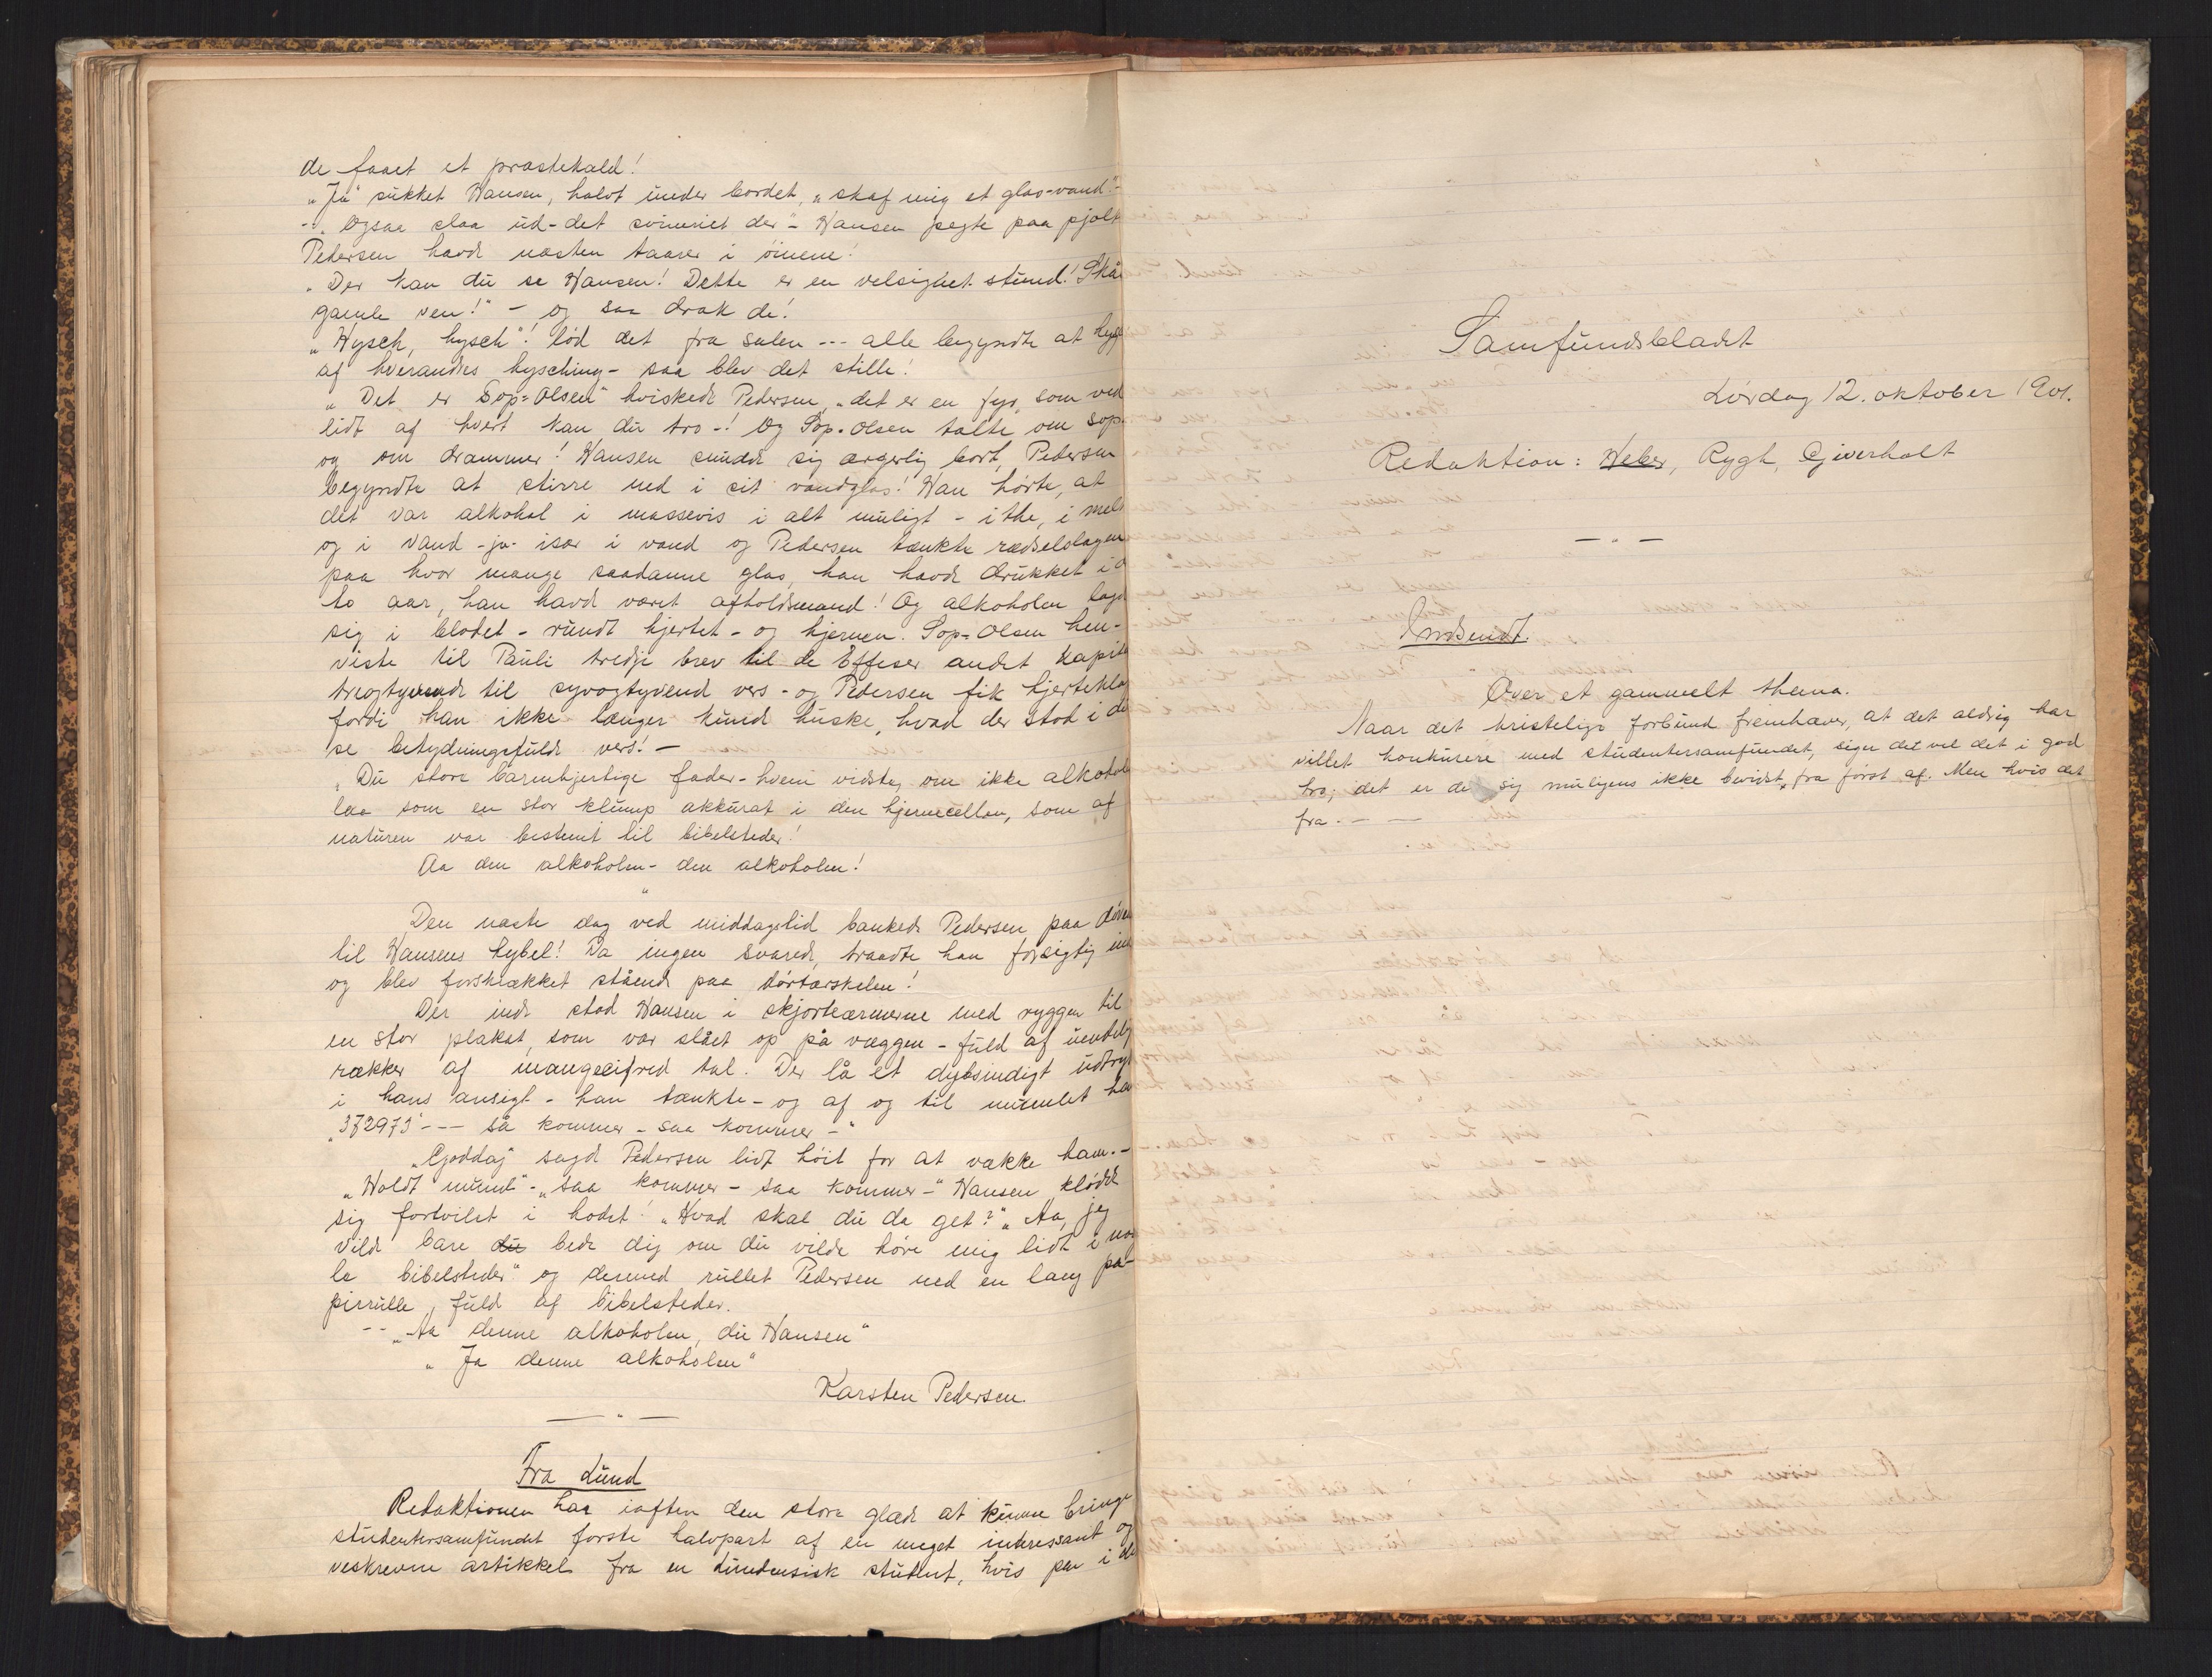 de faaet et præstekald!
„Ja" sukket Hansen, halvt under bordet, „skaf mig et glas-vand."-
-„Ogsaa slaa ud-det svineriet der"- Hansen pegte paa pjolt
Pedersen havde næsten taarer i öinene!
„Der kan du se Hansen! Dette er en velsignet stund! Skå
gamle ven!" - og saa drak de!
„Hysch, hysch"! lød det fra salen --- alle begyndte at
af hverandres hysching - saa blev det stille!
„Det er Sop-Olsen" hviskede Pedersen, „det er en fyr, som ved
lidt af hvert kan du tro -! Og Sop-Olsen talte om sop
og om drammer! Hansen snudde sig ærgerlig bort, Pedersen
begyndte at stirre ned i sit vandglas! Han hørte, at
det var alkohol i massevis i alt muligt - i the, i mel
og i vand - ja - især i vand og Pedersen tænkte rædselslagen
paa hvor mange saadanne glas, han havde drukket i
to aar, han havde været afholdsmand! Og alkoholen
sig i blodet - rundt hjertet - og hjernen. Sop-Olsen hen-
viste til Pauli tredje brev til de Effeser andet kapit
treogtyvende til syvogtyvend vers - og Pedersen fik hjertekla
fordi han ikke længer kunde huske, hvad der stod i di
se betydningsfulde vers! -
„Du store barmhjertige fader - hvem vidste, om ikke alkohol
laa som en stor klump akkurat i den hjernecellen, som af
naturen var bestemt til bibelsteder!
Aa den alkoholen - den alkoholen!
"
Den næste dag ved middagstid bankede Pedersen paa døren
til Hansens hybel! Da ingen svarede, traadte han forsigtig ind
og blev forskrækket stående paa dörtærskelen!
Der inde stod Hansen i skjorteærmerne med ryggen til
en stor plakat, som var slået op på væggen - fuld af uendelig
rækker af mangecifred tal. Der lå et dybsindigt udtryk
i hans ansigt - han tænkte - og af og til mumlet ha
„372973" --- så kommer - saa kommer -"
„Goddag" sagde Pedersen lidt höit for at vække ham. -
„Holdt mund" - „saa kommer - saa kommer -" Hansen klødde
sig fortvilet i hodet! „Hvad skal du da get?" „Aa, jeg
vilde bare du bede dig om du vilde høre mig lidt i no
le bibelsteder" og dermed rullet Pedersen ned en lang pa-
pirrulle, fuld af bibelsteder.
-- „Aa denne alkoholen, du Hansen"
„Ja denne alkoholen"
Karsten Pedersen.
— " —
Fra Lund
Redaktionen har iaften den store glæde at kunne bringe
studentersamfundet første halvpart af en meget interessant og
veskrevne artikkel fra en Lundensisk student, hvis pen i de
Samfundsbladet
Lørdag 12. oktober 1901.
Redaktion: Weber, Rygh, Gjverholt
— " —
Indsendt.
Over et gammelt thema.
Naar det kristelige forbund fremhæver, at det aldrig har
villet konkurere med studentersamfundet, siger det vel det i god
tro; det er de sig muligens ikke bevidst, fra först af. Men hvis det
fra. - —